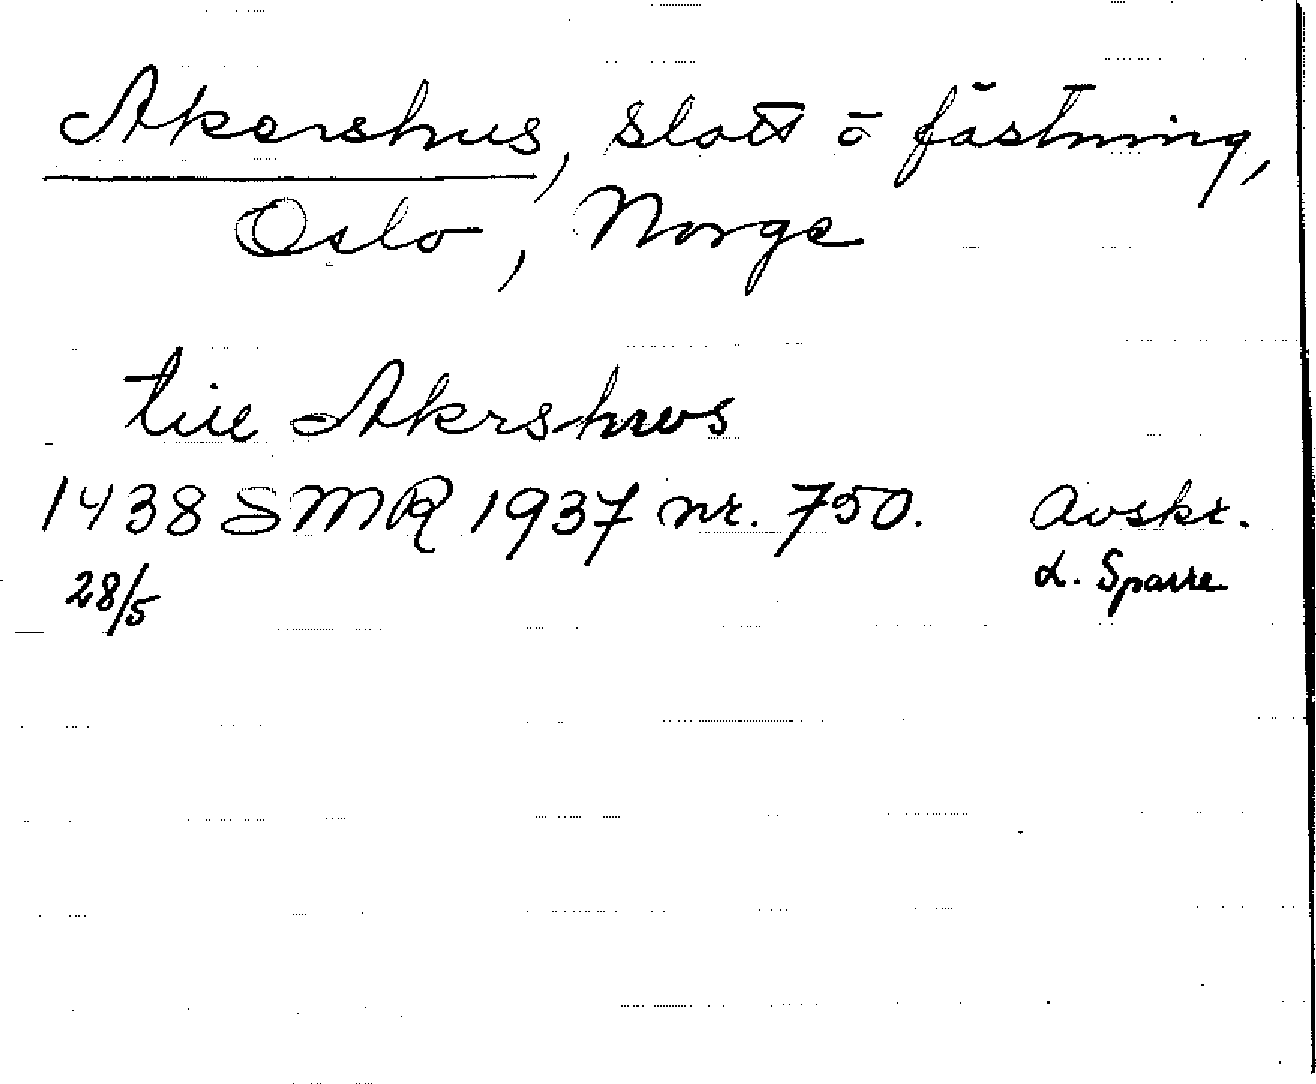 Akershus, slott ō fästning,
Oslo, Norge
till Akrshws
1438 SMR 1937 nr. 750. Avskr.
28/5 L. Sparre